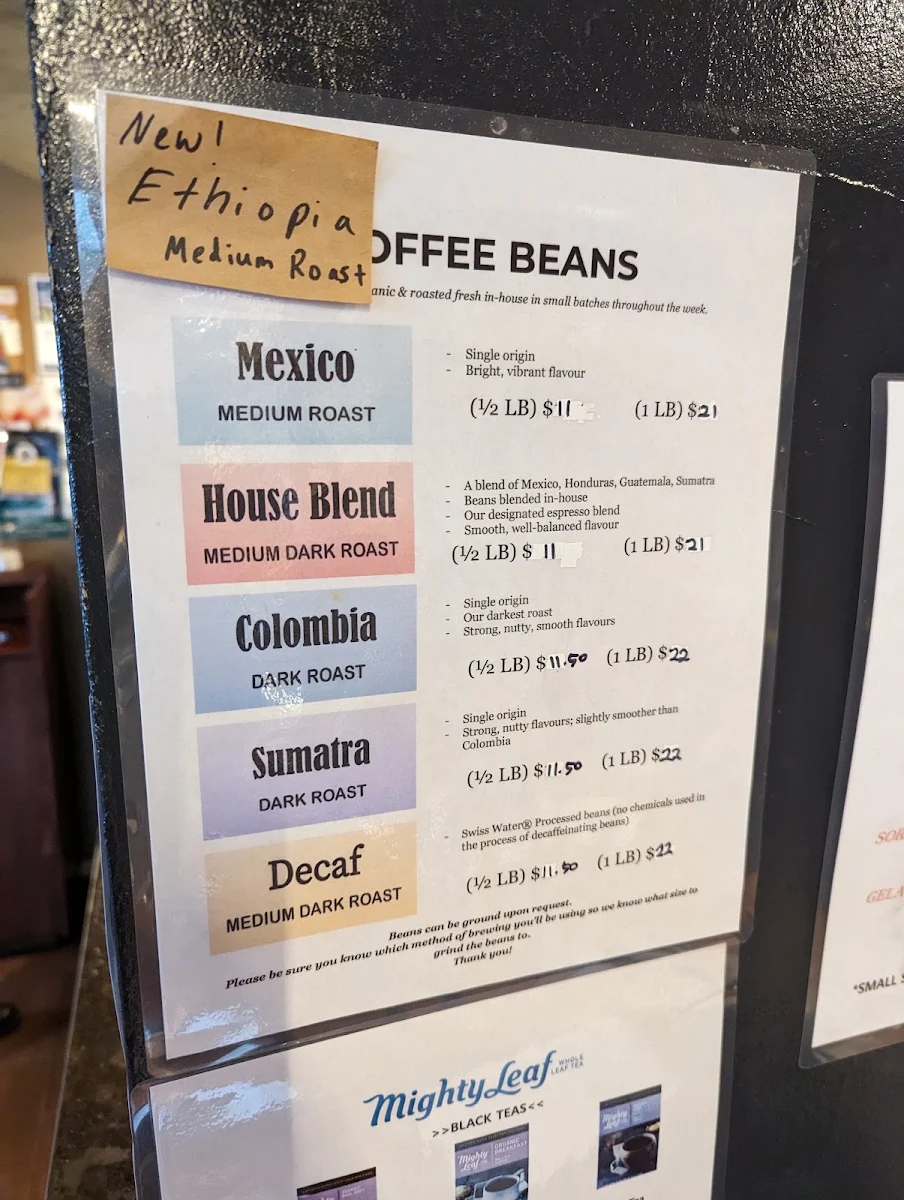 New!
Ethiopia
Medium Roast
OFFEE BEANS
anic & roasted fresh in-house in small batches throughout the week.
Mexico
MEDIUM ROAST
- Single origin
- Bright, vibrant flavour
(½ LB) $11 (1 LB) $21
House Blend
MEDIUM DARK ROAST
- A blend of Mexico, Honduras, Guatemala, Sumatra
- Beans blended in-house
- Our designated espresso blend
- Smooth, well-balanced flavour
(½ LB) $ 11 (1 LB) $21
Colombia
DARK ROAST
- Single origin
- Our darkest roast
- Strong, nutty, smooth flavours
(½ LB) $11.50 (1 LB) $22
Sumatra
DARK ROAST
- Single origin
- Strong, nutty flavours; slightly smoother than
Colombia
(½ LB) $11.50 (1 LB) $22
Decaf
MEDIUM DARK ROAST
- Swiss Water® Processed beans (no chemicals used in
the process of decaffeinating beans)
(½ LB) $11.50 (1 LB) $22
Beans can be ground upon request.
Please be sure you know which method of brewing you'll be using so we know what size to
grind the beans to.
Thank you!
Mighty Leaf WHOLE
LEAF TEA
>>BLACK TEAS<<
Mighty
Leaf
ORGANIC
BREAKFAST
Mighty
Leaf
SOR
GELA
*SMALL